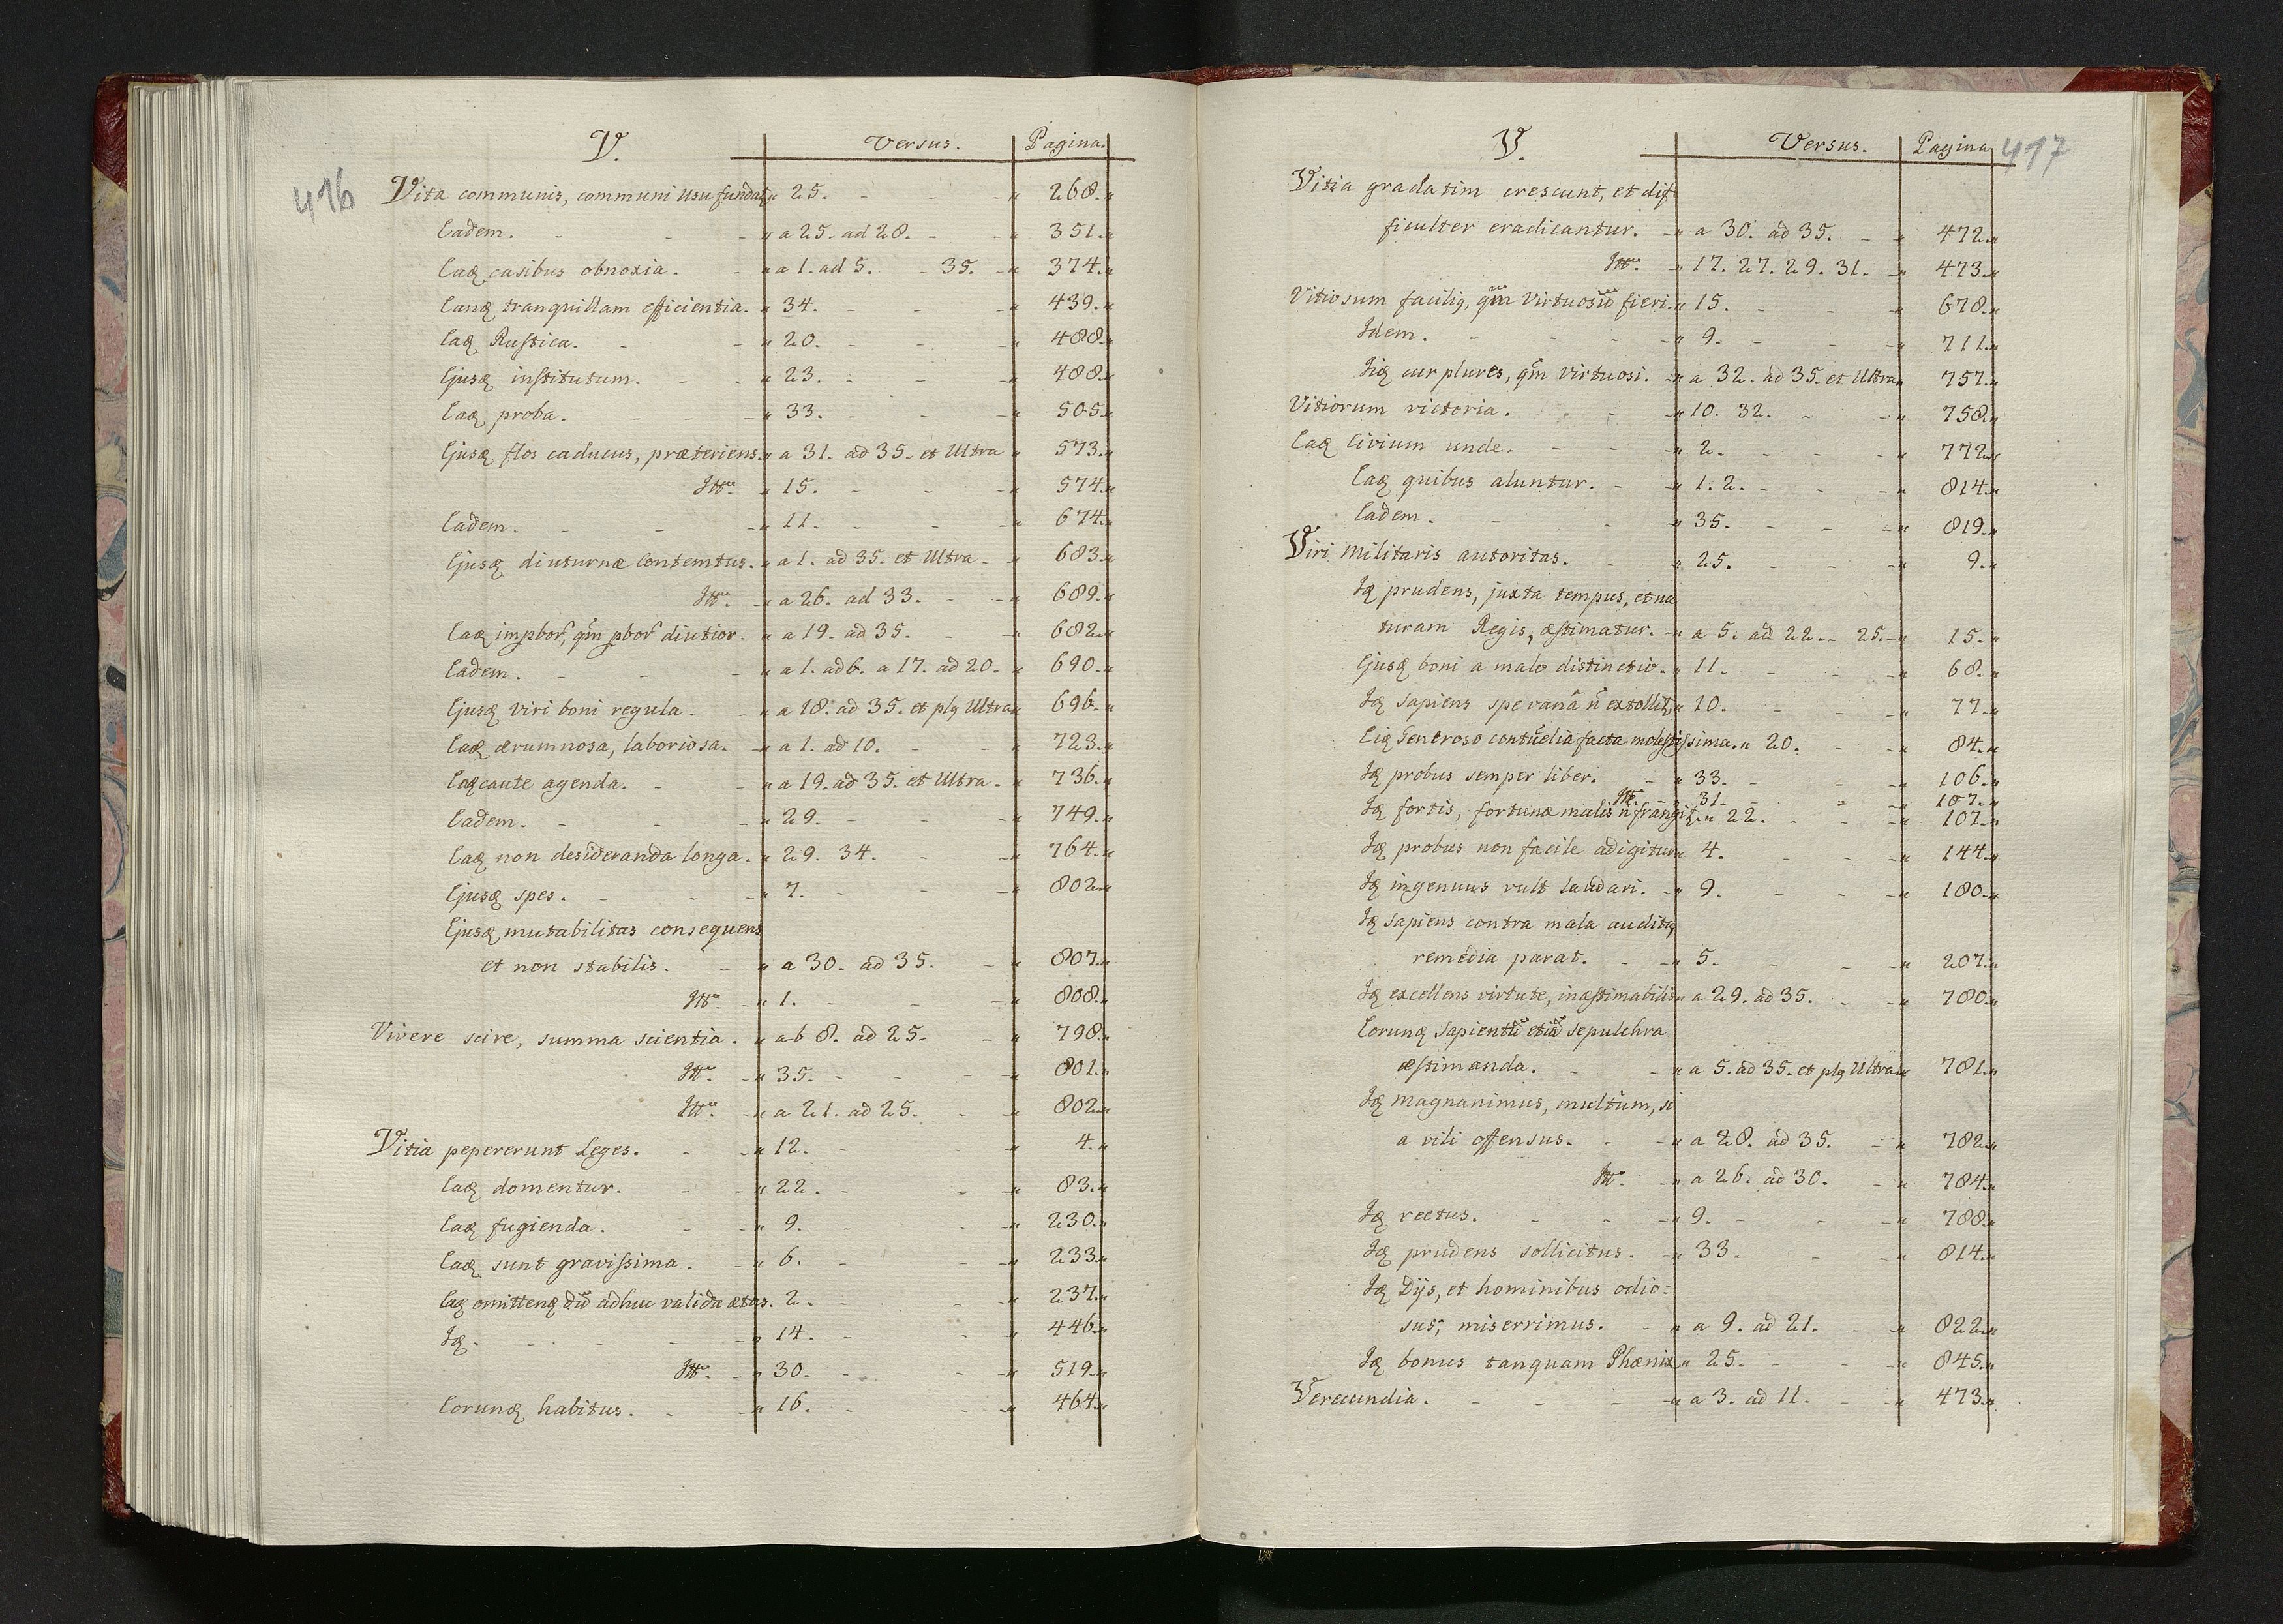 416
V. Versus. Pagina.
Vita communis, communi usu fundat, 25. 268.
Eadem. a 25. ad 28. 351.
Eaq casibus obnoxia. a 1. ad 5. 35. 374.
Eanq tranquillam efficientia. 34. 439.
Eaq Rustica. 20. 488.
Ejusq institutum. 23. 488.
Eaq proba. 33. 505.
Ejusq flos caducus, præteriens. a 31. ad 35. et Ultra 573.
Itm. 15. 574.
Eadem. 11. 674.
Ejusq diuturnæ Contemtus. a 1. ad 35. et Ultra. 683.
Itm. a 26. ad 33. 689.
Eaq impbor, qm pbor diutior. a 19. ad 35. 682.
Eadem. a 1. ad 6. a 17. ad 20. 690.
Ejusq viri boni regula. a 18. ad 35. et plq Ultra 696.
Eaq ærumnosa, laboriosa. a 1. ad 10. 723.
Eaq caute agenda. a 19. ad 35. et Ultra. 736.
Eadem. 29. 749.
Eaq non desideranda longa. 29. 34. 764.
Ejusq spes. 7. 802.
Ejusq mutabilitas consequens
et non stabilis. a 30. ad 35. 807.
Itm. 1. 808.
Vivere scire, summa scientia. ab 8. ad 25. 798.
Itm. 35. 801.
Itm. a 21. ad 25. 802.
Vitia pepererunt Leges. 12. 4.
Eaq domentur. 22. 83.
Eaq fugienda. 9. 230.
Eaq sunt gravissima. 6. 233.
Eaq omittenq dũ adhuc valida ætas. 2. 237.
Iq. 14. 446.
Itm. 30. 519.
Eorunq habitus. 16. 464.
417
V. Versus. Pagina
Vitia gradatim crescunt, et dif-
ficulter eradicantur. a 30. ad 35. 472.
Itm. 17. 27. 29. 31. 473.
Vitiosum faciliq, qm virtuosũ fieri. 15. 678.
Idem. 9. 711.
Iiq cur plures, qm virtuosi. a 32. ad 35. et Ultra 757.
Vitiorum victoria. 10. 32. 758.
Eaq Civium unde. 2. 772.
Eaq quibus aluntur. 1. 2. 814.
Eadem. 35. 819.
Viri Militaris autoritas. 25. 9.
Iq prudens, juxta tempus, et na
turam Regis, æstimatur. a 5. ad 22. 25. 15.
Ejusq boni a malo distinctio. 11. 68.
Iq Sapiens spe vanâ ñ extollit, 10. 77.
Eiq Generoso contũelia facta molestissima. 20. 84.
Iq probus semper liber. 33. 106.
Itm. 31. 107.
Iq fortis, fortunæ malis ñ frangit. 22. 107.
Iq probus non facile adigitur 4. 144.
Iq ingenuus vult laudari. 9. 180.
Iq Sapiens contra mala audita,
remedia parat. 5. 207.
Iq excellens virtute, inæstimabilis a 29. ad 35. 780.
Eorunq Sapientũ etiã Sepulchra
æstimanda. a 5. ad 35. et plq Ultra 781.
Iq Magnanimus, multum, si
a vili offensus. a 28. ad 35. 782.
Itm. a 26. ad 30. 784.
Iq rectus. 9. 788.
Iq prudens sollicitus. 33. 814.
Iq Dijs, et hominibus odio=
sus, miserrimus. a 9. ad 21. 822.
Iq bonus tanquam Phænix 25. 845.
Verecundia. a 3. ad 11. 473.